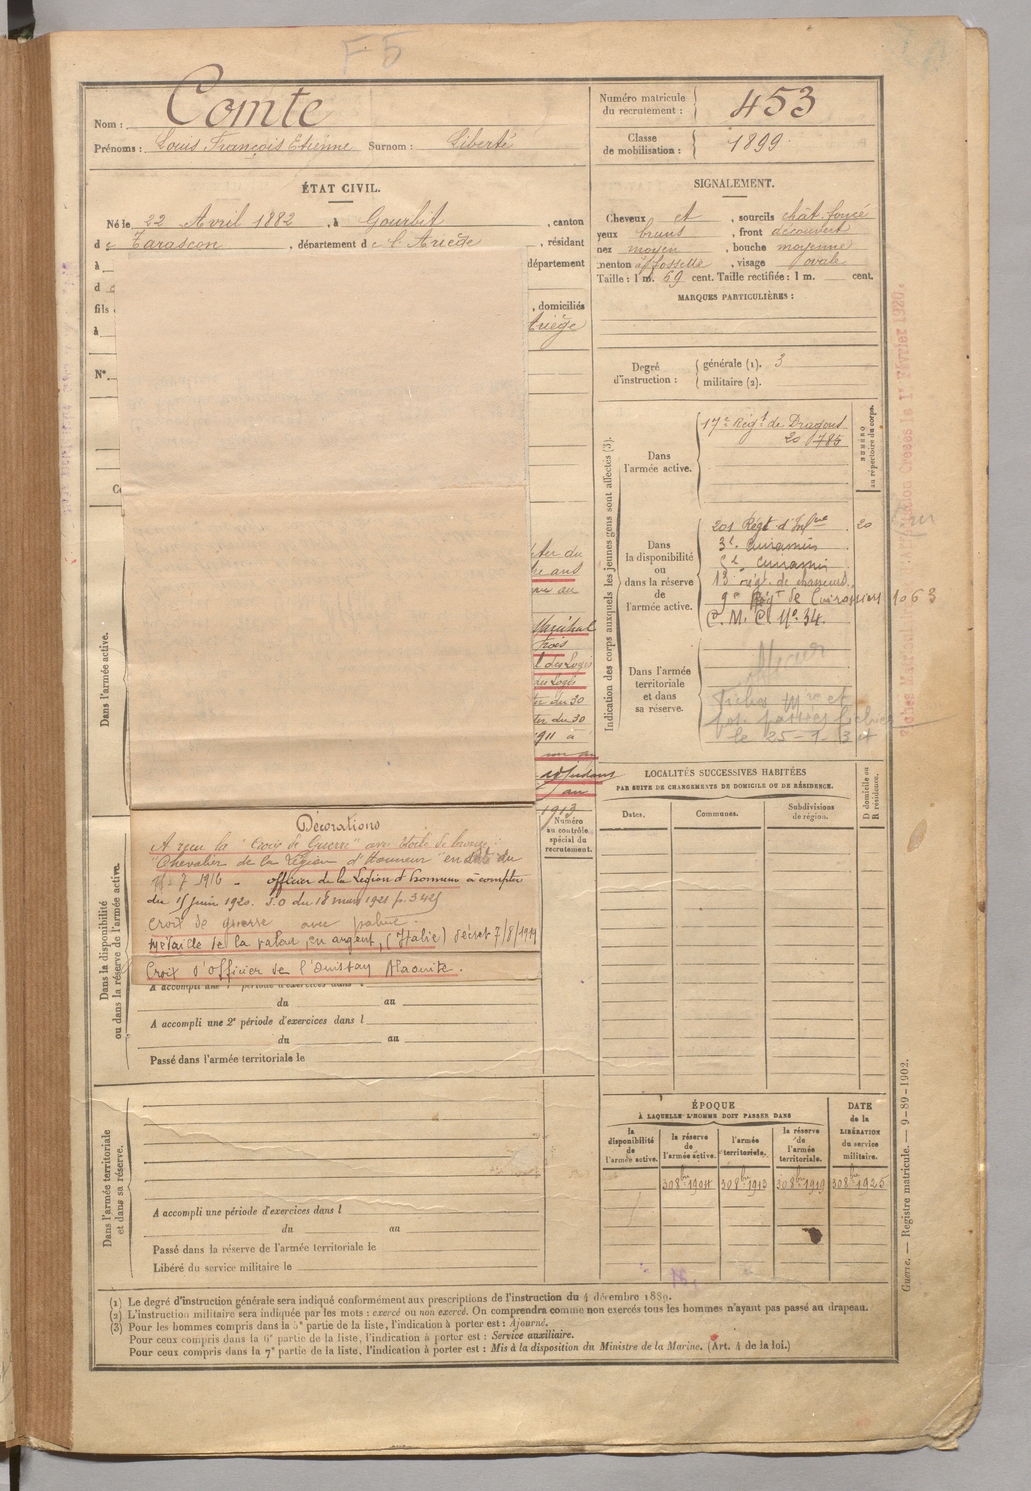 F5
Nom : Comte
Prénoms : Louis François Etienne Surnom : Liberté
Numéro matricule
du recrutement : 453
Classe
de mobilisation : 1899
ÉTAT CIVIL.
Né le 22 Avril 1882, à Gourbit, canton
de Tarascon, département de l'Ariège, résidant
à département
d
fils , domiciliés
à Ariège
N°
SIGNALEMENT.
Cheveux ct, sourcils chât. foncé
yeux bruns, front découvert
nez moyen, bouche moyenne
menton à fossette, visage ovale
Taille : 1 m. 69 cent. Taille rectifiée : 1 m. cent.
MARQUES PARTICULIÈRES :
Degré
d'instruction :
générale (1). 3
militaire (2).
Indication des corps auxquels les jeunes gens sont affectés (3).
NUMÉRO
au répertoire du corps.
Dans
l'armée active.
17e Régt de Dragons
20 785
Dans
la disponibilité
ou
dans la réserve
de
l'armée active.
201 Régt d'Infrie 20
3e Cuirassiers
5e Cuirassiers
13e régt. de chasseurs
9e Régt de Cuirassiers 1063
C. M. C. N° 34.
Dans l'armée
territoriale
et dans
sa réserve.
le 25-9-3
Fiches Matricules Mobilisation Créées le 1er Février 1920.
Dans l'armée active.
ans
au
Maréchal
trois
des Logis
des Logis
du 30
du 30
1911 à
au
1913
Numéro
au contrôle
spécial du
recrutement.
LOCALITÉS SUCCESSIVES HABITÉES
PAR SUITE DE CHANGEMENTS DE DOMICILE OU DE RÉSIDENCE.
D domicile ou
R résidence.
Dates.
Communes.
Subdivisions
de région.
Dans la disponibilité
ou dans la réserve de l'armée active.
Décorations
A reçu la "Croix de Guerre" avec étoile de bronze
"Chevalier de la Légion d'Honneur" en date du
7 1916 - officier de la Légion d'honneur à compter
du 15 juin 1920. J.O du 18 mars 1921 p. 3425
Croix de guerre avec palme.
Médaille de la valeur, en argent, (Italie) décret 7/8/1919
Croix d'officier de l'Ouissam Alaouite.
A accompli une 1re période d'exercices dans l
du au
A accompli une 2e période d'exercices dans l
du au
Passé dans l'armée territoriale le
Dans l'armée territoriale
et dans sa réserve.
A accompli une période d'exercices dans l
du au
Passé dans la réserve de l'armée territoriale le
Libéré du service militaire le
ÉPOQUE
À LAQUELLE L'HOMME DOIT PASSER DANS
DATE
de la
LIBÉRATION
du service
militaire.
la
disponibilité
de
l'armée active.
la réserve
de
l'armée active.
l'armée
territoriale.
la réserve
de
l'armée
territoriale.
30 8bre 1904 30 8bre 1913 30 8bre 1919 30 8bre 1925
Guerre. — Registre matricule. — 9-89-1902.
(1) Le degré d'instruction générale sera indiqué conformément aux prescriptions de l'instruction du 4 décembre 1889.
(2) L'instruction militaire sera indiquée par les mots : exercé ou non exercé. On comprendra comme non exercés tous les hommes n'ayant pas passé au drapeau.
(3) Pour les hommes compris dans la 5e partie de la liste, l'indication à porter est : Ajourné.
Pour ceux compris dans la 6e partie de la liste, l'indication à porter est : Service auxiliaire.
Pour ceux compris dans la 7e partie de la liste, l'indication à porter est : Mis à la disposition du Ministre de la Marine. (Art. 4 de la loi.)